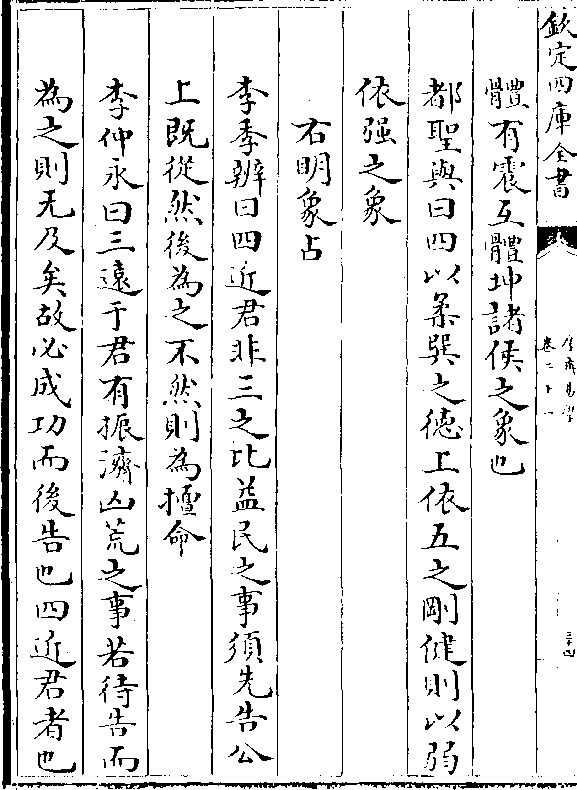 欽定四庫全書
厚齋易學
卷二十一
三十四
體有震互體坤諸侯之象也
都聖與曰四以柔巽之德上依五之剛健則以弱
依强之象
右明象占
李季辨曰四近君非三之比益民之事須先告公
上既從然後為之不然則為擅命
李仲永曰三遠于君有振濟凶荒之事若待告而
為之則无及矣故必成功而後告也四近君者也